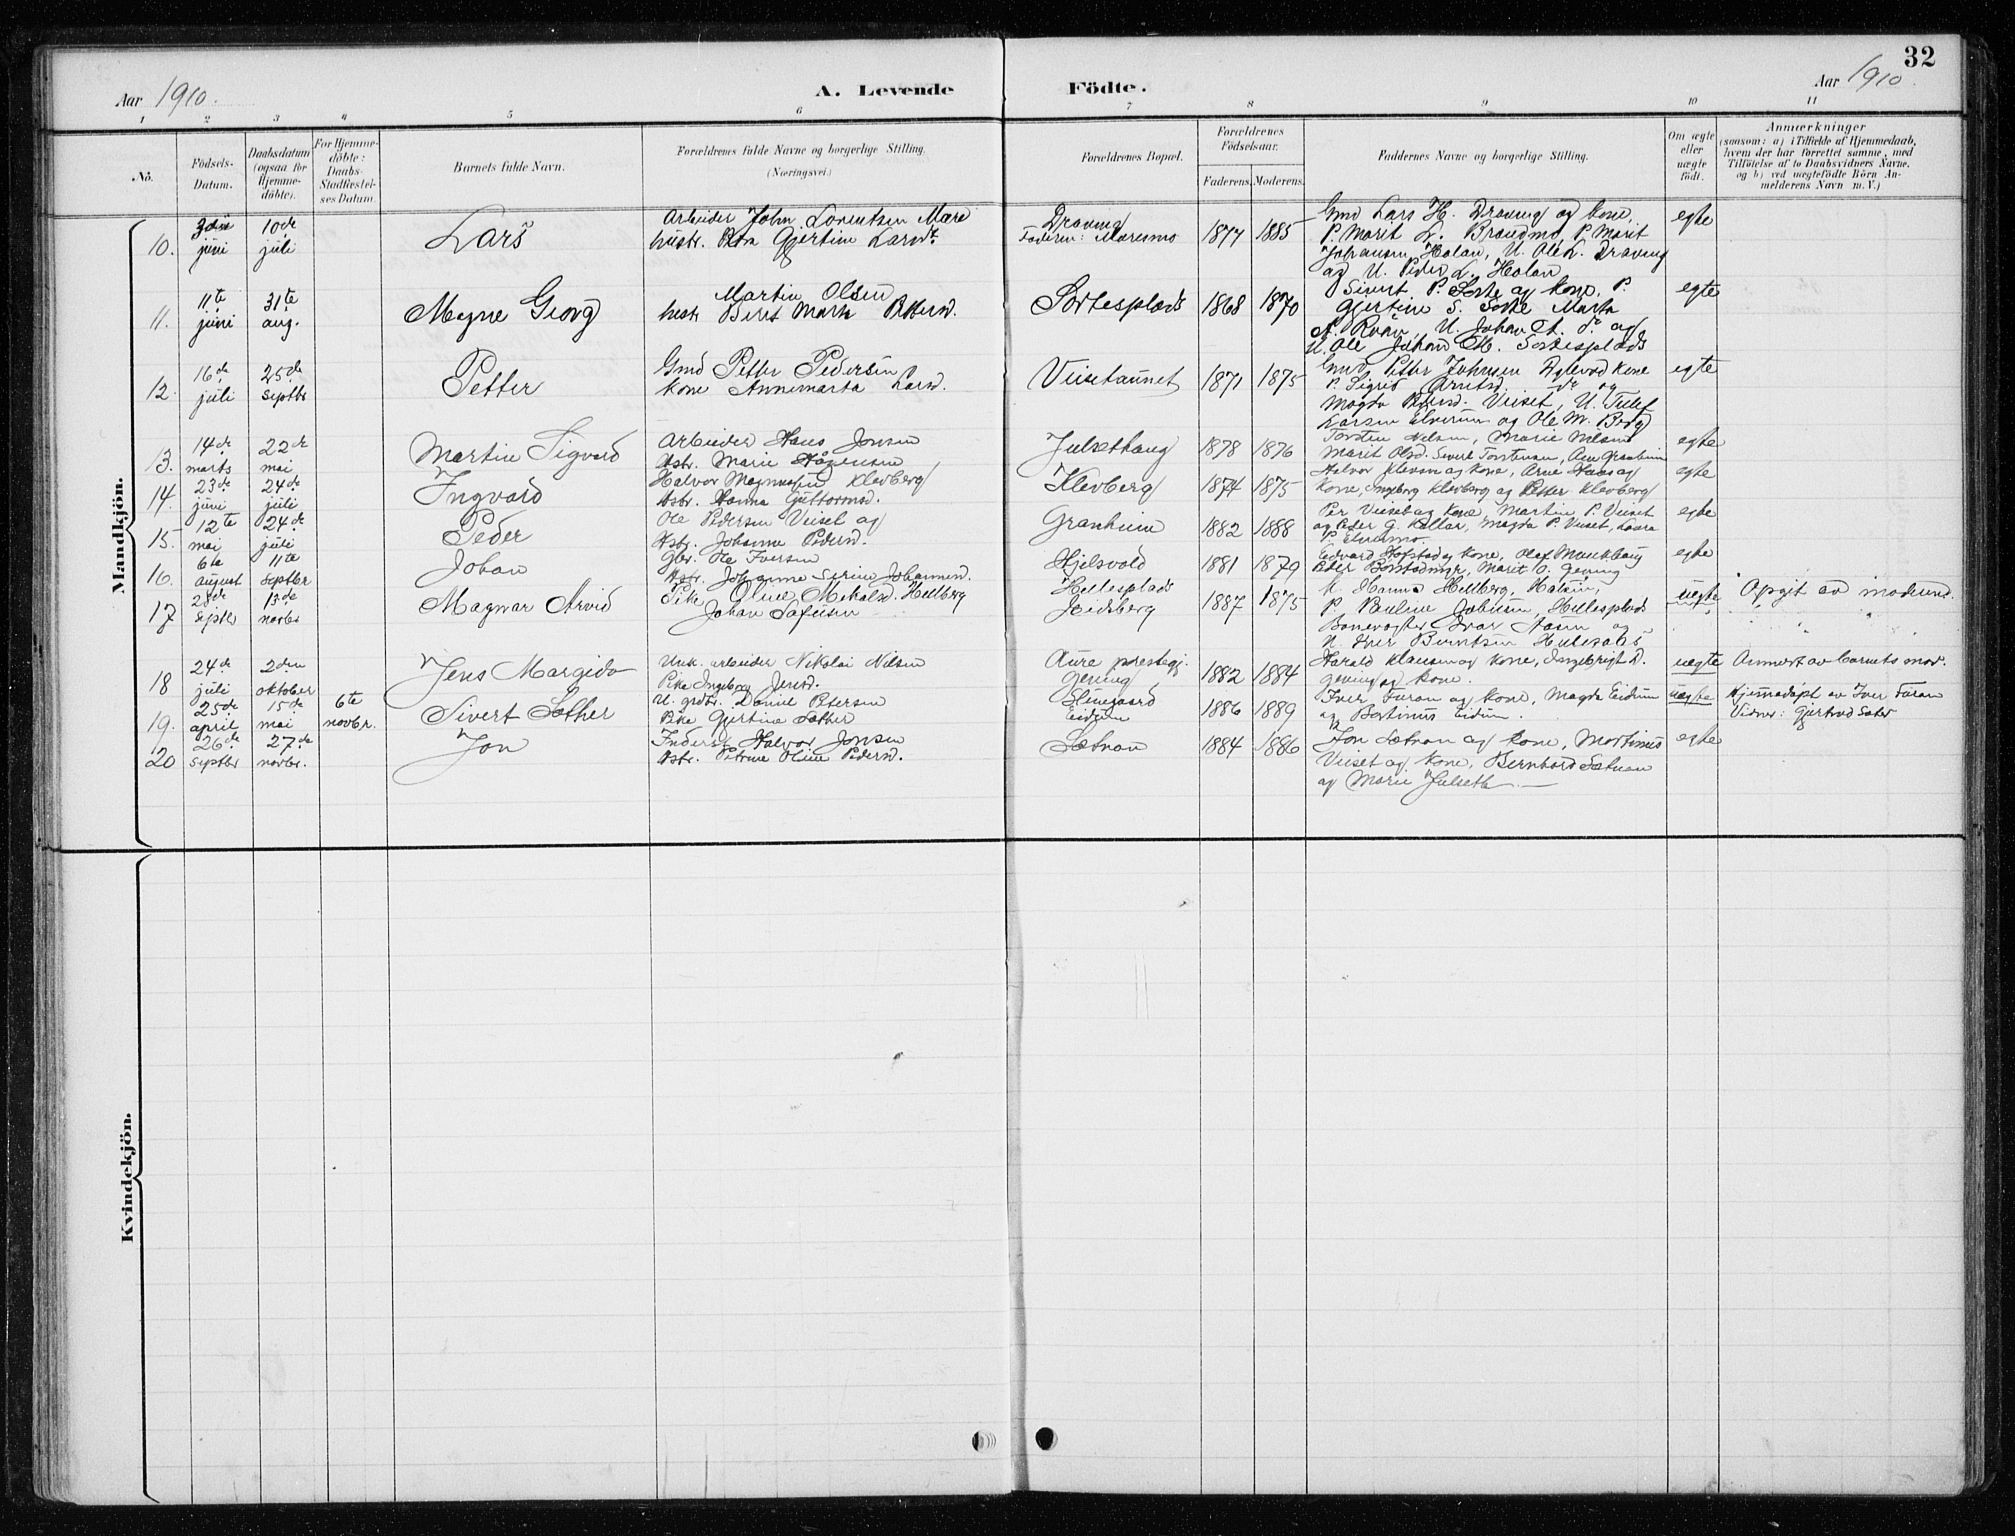 32
Aar 1910. A. Levende Födte. Aar 1910.
1 2 3 4 5 6 7 8 9 10 11
No. Födsels-Datum. Daabsdatum (ogsaa for Hjemmedöbte). For Hjemmedöbte: Daabs-Stadfæstelses Datum. Barnets fulde Navn. Forældrenes fulde Navne og borgerlige Stilling. (Næringsvei.) Forældrenes Bopæl. Forældrenes Födselsaar. Faderens. Moderens. Faddernes Navne og borgerlige Stilling. Om ægte eller uægte födt. Anmærkninger (saasom: a) i Tilfælde af Hjemmedaab, hvem der har forrettet samme, med Tilföielse af to Daabsvidners Navne, og b) ved uægtefödte Börn Anmelderens Navn m. V.)
Mandkjön.
10. juni 10de juli Lars Arbeider John Lorentsen Mære hustr. Gjertine Larsdt. Drøving Faderen: Maresmo 1877 1885 Gmd Lars H. Drøving og kone,
P. Marit L. Brandmo P. Marit
Johansen Holan, U. Ole L. Drøving
og U. Peder L. Holan
egte
11. 11te juni 31te aug. Magne Georg Martin Olsen hustr. Beret Marta Pettersd. Sortesplads 1868 1870 Sivert P. Sorte og kone, P.
Gjertine S. Sorte Marta
U. Johan og
U. Ole Johan Sortesplads
egte
12. 16de juli 25de septbr Petter Gmd Petter Pedersen kone Annemarta Larsd. Viisetaunet 1871 1875 Gmd Petter Johnsen kone
P. Sigrid Arntsd. do og
Magda Pedersd. Viiset, U.
Larsen Elverum og Ole M. Berg
egte
13. 14de marts 22de mai Martin Sigvard Arbeider Hans Jonsen Hstr. Marie Julsethaug 1878 1876 Torsten Nilsen, Marie
Marit Olsd. Sivert Torstensen,
egte
14. 23de juni 24de juli Ingvard Halvor Magnussen Klevberg Hstr. Hanna Guttormsd. Klevberg 1874 1875 Halvor Klevson og kone, Arne Haas og
kone, Ingeborg Klevberg og Petter Klevberg
egte
15. 12te mai 24de juli Peder Ole Pedersen Viiset og Hstr. Johanne Pedersd. Granheim 1882 1888 Per Viiset og kone, Martin P. Viiset
og Peder G. Kollar, Magda P. Viiset, Laura
P. Elverumo.
egte
16. 6te august 11te septbr Johan Gbr. Ole Iversen Hstr. Johanne Serine Johannesd. Hjelsvold 1881 1879 Edvard Hofstad og kone, Olaf Munkhaug
Peder Marit O. Gevning
egte
17 28de septbr 13de novbr Magnar Arvid Pike Oline Mikalsd. Hellberg Johan Hellesplads Leidsberg 1887 1875 K. Hanna Hellberg, Halsen,
P. Pauline Jakobsen, Hellesplads
Banevogter Ivar Aasen og
U. Iver Berntsen
uegte Opgit av moderend.
18 24de juli 2den oktober Jens Margido Unk. arbeider Nikolai Nilsen Pike Ingeborg Jensd. Aure prestegj. Gevning 1882 1884 Harald Klausen og kone, Ingebrigt D.
Gevning og kone.
uegte Anmert av barnets mor.
19. 25de april 15de mai 6te novbr. Sivert Sather U. Daniel Petersen Pike Gjertine Sather Eidum 1886 1889 Iver Furan og kone, Magda Eidum
og Bertinus Eidum.
uegte Hjemmedøpt av Iver Furan
Vidner: Gjertrud Sater
20 26de septbr 27de novbr. Jon Inderst Halvor Jonsen Hstr. Petrine Oline Pedersd. Sætnan 1884 1886 Jon Sætnan og kone, Martinus
Viiset og kone, Bernhard Sætnan
og Marie Julseth.
egte
Kvindekjön.